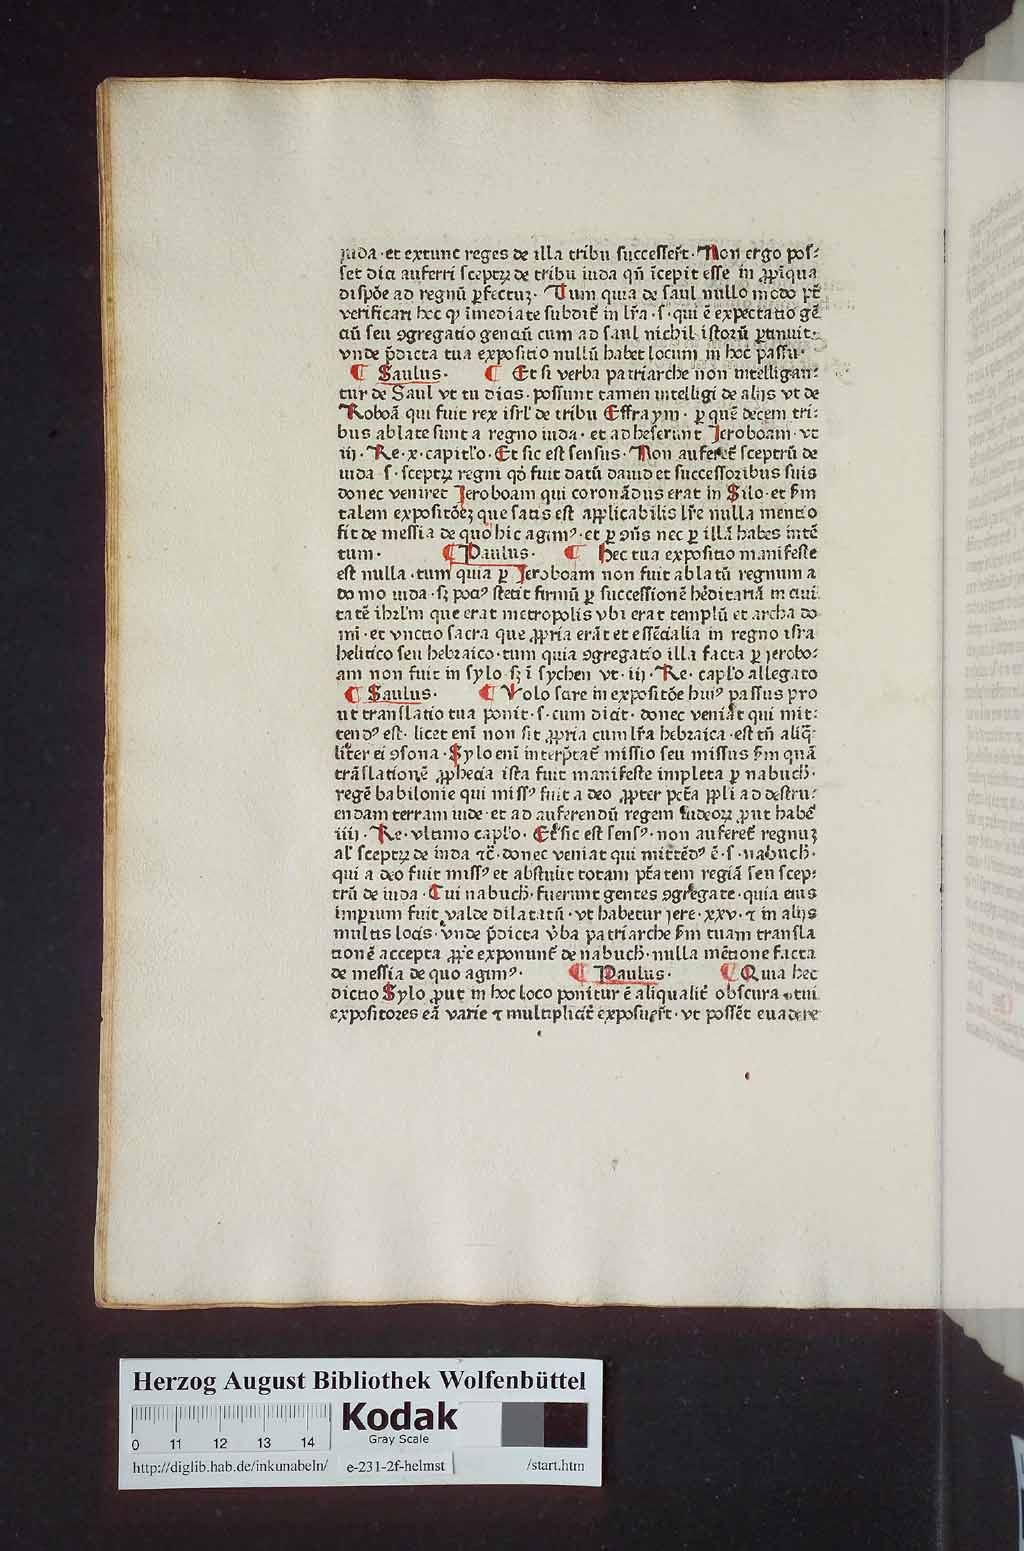 iuda · et extunc reges de illa tribu successeřt · Non ergo pos⸗
set dici auferri sceptꝝ de tribu iuda qn̄ īcepit esse in ꝓpīqua
dispōe ad regnū ꝑfectuꝫ · Tum quia de saul nullo modo pt̄
verificari hec ꝙ īmediate subdit̄ in lr̄a · s · qui ē expectatio gē
ciū seu ꝯgregatio genciū cum ad saul nichil istorū ꝑtinuit⸗
vnde p̄dicta tua expositio nullū habet locum in hoc passu ·
¶ Saulus · ¶ Et si verba patriarche non intelligan⸗
tur de Saul vt tu dicis · possunt tamen intelligi de alijs vt de
Roboā qui fuit rex isrl' de tribu Effraym · ꝑ quē decem tri⸗
bus ablate sunt a regno iuda · et adheserunt Jeroboam · vt
iij · Re · x · capitl'o · Et sic est sensus · Non auferet̄ sceptrū de
iuda · s · sceptꝝ regni qd̄ fuit datū dauid et successoribus suis
donec veniret Jeroboam qui coronādus erat in Silo · et ẜm
talem expositōeꝫ que satis est applicabilis lr̄e nulla mentio
fit de messia de quo hic agimꝰ · et ꝑ ꝯn̄s nec ꝑ illā habes intē
tum · ¶ Paulus · ¶ Hec tua expositio manifeste
est nulla · tum quia ꝑ Jeroboam non fuit ablatū regnum a
domo iuda · sꝫ pociꝰ stetit firmū ꝑ successionē hēditariā in ciui
tatē ihrl'm que erat metropolis vbi erat templū et archa do
mī · et vnctio sacra que ꝓpria erāt et essēcialia in regno isra
helitico seu hebraico · tum quia ꝯgregatio illa facta ꝑ jerobo⸗
am non fuit in sylo · sꝫ ī sychen vt · iij · Re · capl'o allegato
¶ Saulus · ¶ Volo stare in expositōe huiꝰ passus pro
ut translatio tua ponit · s · cum dicit · donec veniat qui mit⸗
tendꝰ est · licet enī non sit ꝓpria cum lr̄a hebraica · est tn̄ aliq̄⸗
liter ei ꝯsona · Sylo enī interp̄tat̄ missio seu missus ẜm quā
trāslationē ꝓphecia ista fuit manifeste impleta ꝑ nabuch̄ ·
regē babilonie qui missꝰ fuit a deo ꝓpter pctā ppl'i ad destru⸗
endam terram iude · et ad auferendū regem iudeoꝝ ꝓut habet̄
iiij · Re · vltimo capl'o · Et sic est sensꝰ · non auferet̄ regnuꝫ
al' sceptꝝ de iuda ⁊c̄ · donec veniat qui mittēdꝰ ē · s · nabuch̄ ·
qui a deo fuit missꝰ et abstulit totam ptātem regiā seu scep⸗
trū de iuda · Cui nabuch̄ · fuerunt gentes ꝯgregate · quia eius
imꝑium fuit valde dilatatū · vt habetur jere · xxv · ⁊ in alijs
multis locis · vnde p̄dicta v̄ba patriarche ẜm tuam transla
tionē accepta ꝓprie exponunt̄ de nabuch̄ · nulla mētione facta
de messia de quo agimꝰ · ¶ Paulus · ¶ Quia hec
dictio Sylo ꝓut in hoc loco ponitur ē aliqualit̄ obscura · tui
expositores eā varie ⁊ multiplicit̄ exposueřt · vt possēt euadere
Herzog August Bibliothek Wolfenbüttel
Kodak
Gray Scale
0 11 12 13 14
http://diglib.hab.de/inkunabeln/ e-231-2f-helmst /start.htm